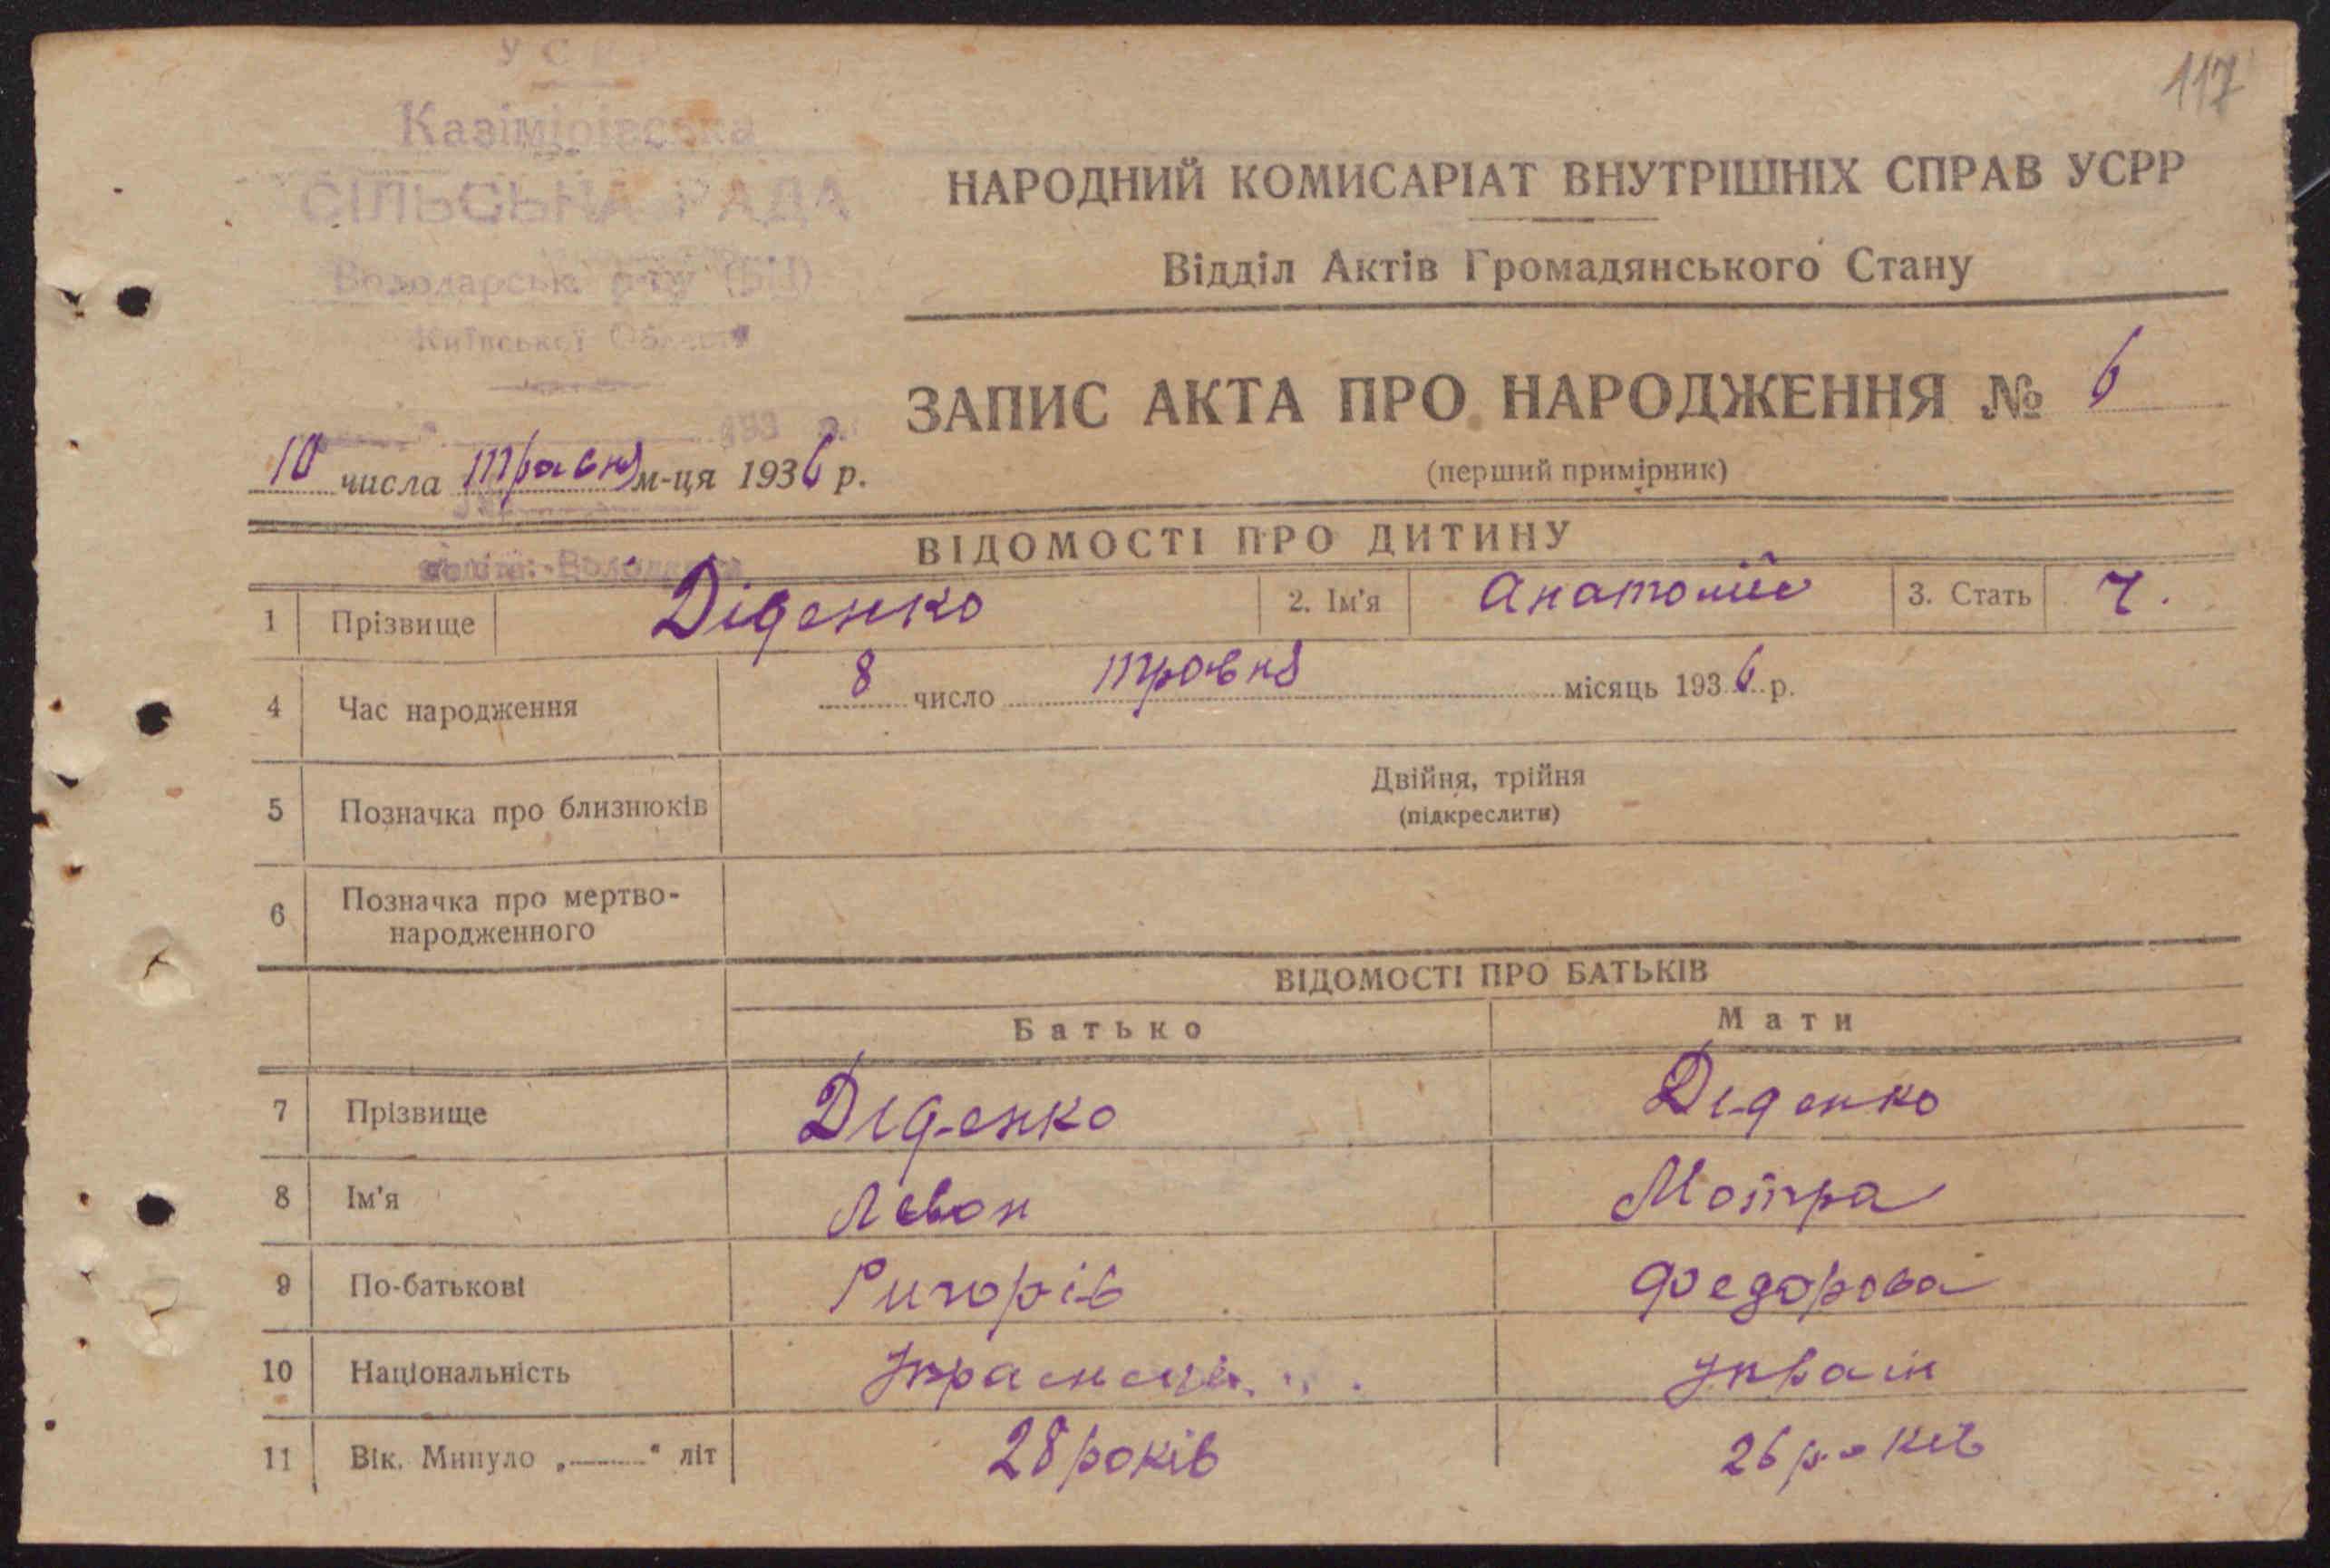 УСРР
117
Казімірівська
СІЛЬСЬКА РАДА
Володарськ. р-ну (БЦ)
Київської Області
НАРОДНИЙ КОМИСАРІАТ ВНУТРІШНІХ СПРАВ УСРР
Відділ Актів Громадянського Стану
ЗАПИС АКТА ПРО НАРОДЖЕННЯ № 6
(перший примірник)
193 р.
10 числа травня м-ця 1936 р.
ВІДОМОСТІ ПРО ДИТИНУ
1 Прізвище Діденко 2. Ім'я Анатолій 3. Стать ч.
4 Час народження 8 число травня місяць 1936 р.
5 Позначка про близнюків Двійня, трійня
(підкреслити)
6 Позначка про мертво-
народженного
ВІДОМОСТІ ПРО БАТЬКІВ
Батько Мати
7 Прізвище Діденко Діденко
8 Ім'я Левон Мотра
9 По-батькові Ригорів Федорова
10 Національність Украін
11 Вік. Минуло „ “ літ 28 років 26 років